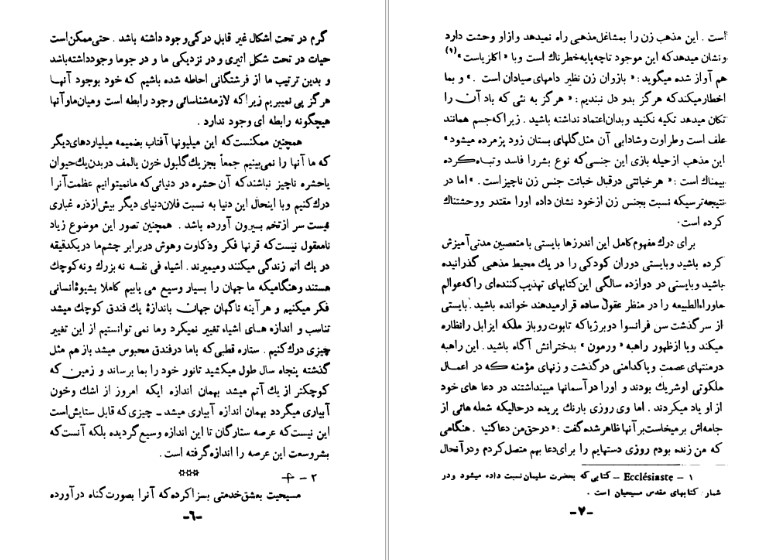 گرم در تحت اشکال غیر قابل درکی وجود داشته باشد . حتی ممکن است
حیات در تحت شکل اتیری و در نزدیکی ما و در جوما وجودداشته‌باشد
و بدین ترتیب ما از فرشتگانی احاطه شده باشیم که خود بوجود آنها
هرگز پی نمیبریم زیرا که لازمه شناسائی وجود رابطه است ومیان‌ماو‌آنها
هیچگونه رابطه ای وجود ندارد .
همچنین ممکنست که این میلیونها آفتاب بضمیمه میلیاردهای‌دیگر
که ما آنها را نمی‌بینیم جمعاً بجز یک گلبول خون یا لمف در بدن یک حیوان
یا حشره ناچیز نباشند که آن حشره در دنیائی که ما نمیتوانیم عظمت آنرا
درک کنیم و با اینحال این دنیا به نسبت فلان دنیای دیگر بیش از ذره غباری
نیست سر از تخم بیرون آورده باشد . همچنین تصور این موضوع زیاد
نامعقول نیست که قرنها فکر و ذکاوت وهوش در برابر چشم ما در یکدقیقه
در یک اتم زندگی میکنند ومیمیرند . اشیاء فی نفسه نه بزرگ ونه کوچک
هستند وهنگامیکه ما جهان را بسیار وسیع می یابیم کاملا بشیوۀ انسانی
فکر میکنیم و هر آینه ناگهان جهان باندازۀ یک فندق کوچک میشد
تناسب و اندازه های اشیاء تغییر نمیکرد وما نمی توانستیم از این تغییر
چیزی درک کنیم . ستاره قطبی که باما درفندق محبوس میشد باز هم مثل
گذشته پنجاه سال طول میکشید تا نور خود را بما برساند و زمین که
کوچکتر از یک اتم میشد بهمان اندازه ایکه امروز از اشک وخون
آبیاری میگردد بهمان اندازه آبیاری میشد ـ چیزی که قابل ستایش است
این نیست که عرصه ستارگان تا این اندازه وسیع گردیده بلکه آنست که
بشر وسعت این عرصه را اندازه گرفته است .
***
مسیحیت به‌عشق خدمتی بسزا کرده که آنرا بصورت گناه در آورده
-٦-
است . این مذهب زن را بمشاغل مذهبی راه نمیدهد و از او وحشت دارد
ونشان میدهد که این موجود تاچه پایه خطرناک است وبا « اکلزیاست » (۱)
هم آواز شده میگوید : « بازوان زن نظیر دامهای صیادان است . » و بما
اخطار میکند که هرگز بدو دل نبندیم : « هرگز به نئی که باد آن را
تکان میدهد تکیه نکنید وبدان اعتماد نداشته باشید . زیرا که جسم همانند
علف است وطراوت وشادابی آن مثل گلهای بستان زود پژمرده میشود »
این مذهب از حیله بازی این جنسی که نوع بشر را فاسد و تباه کرده
بیمناک است : « هر خباثتی در قبال خباثت جنس زن ناچیز است . » اما در
نتیجه ترسیکه نسبت بجنس زن از خود نشان داده اورا مقتدر و وحشتناک
کرده است .
برای درک مفهوم کامل این اندرزها بایستی با متعصبین مدتی آمیزش
کرده باشید وبایستی دوران کودکی را در یک محیط مذهبی گذرانیده
باشید وبایستی در دوازده سالگی این کتابهای تهذیب کننده‌ای را که عوالم
ماوراءالطبیعه را در منظر عقول ساده قرار میدهند خوانده باشید . بایستی
از سرگذشت سن فرانسوا دوبرژیا که تابوت روباز ملکه ایزابل را نظاره
میکند ویا از ظهور راهبه « ورمون » بدخترانش آگاه باشید . این راهبه
درمنتهای عصمت وپاکدامنی درگذشت و زنهای مؤمنه که در اعمال
ملکوتی او شریک بودند و او را در آسمانها میپنداشتند در دعا های خود
از او یاد میکردند . اما وی روزی با رنگ پریده در حالیکه شعله هائی از
جامه‌اش بر میخاست بر آنها ظاهر شده گفت : « در حق من دعا کنید . هنگامی
که من زنده بودم روزی دستهایم را برای دعا بهم متصل کردم ودر آنحال
۱ – Ecclésiaste – کتابی که بحضرت سلیمان نسبت داده میشود ودر
شمار کتابهای مقدس مسیحیان است .
-۷-